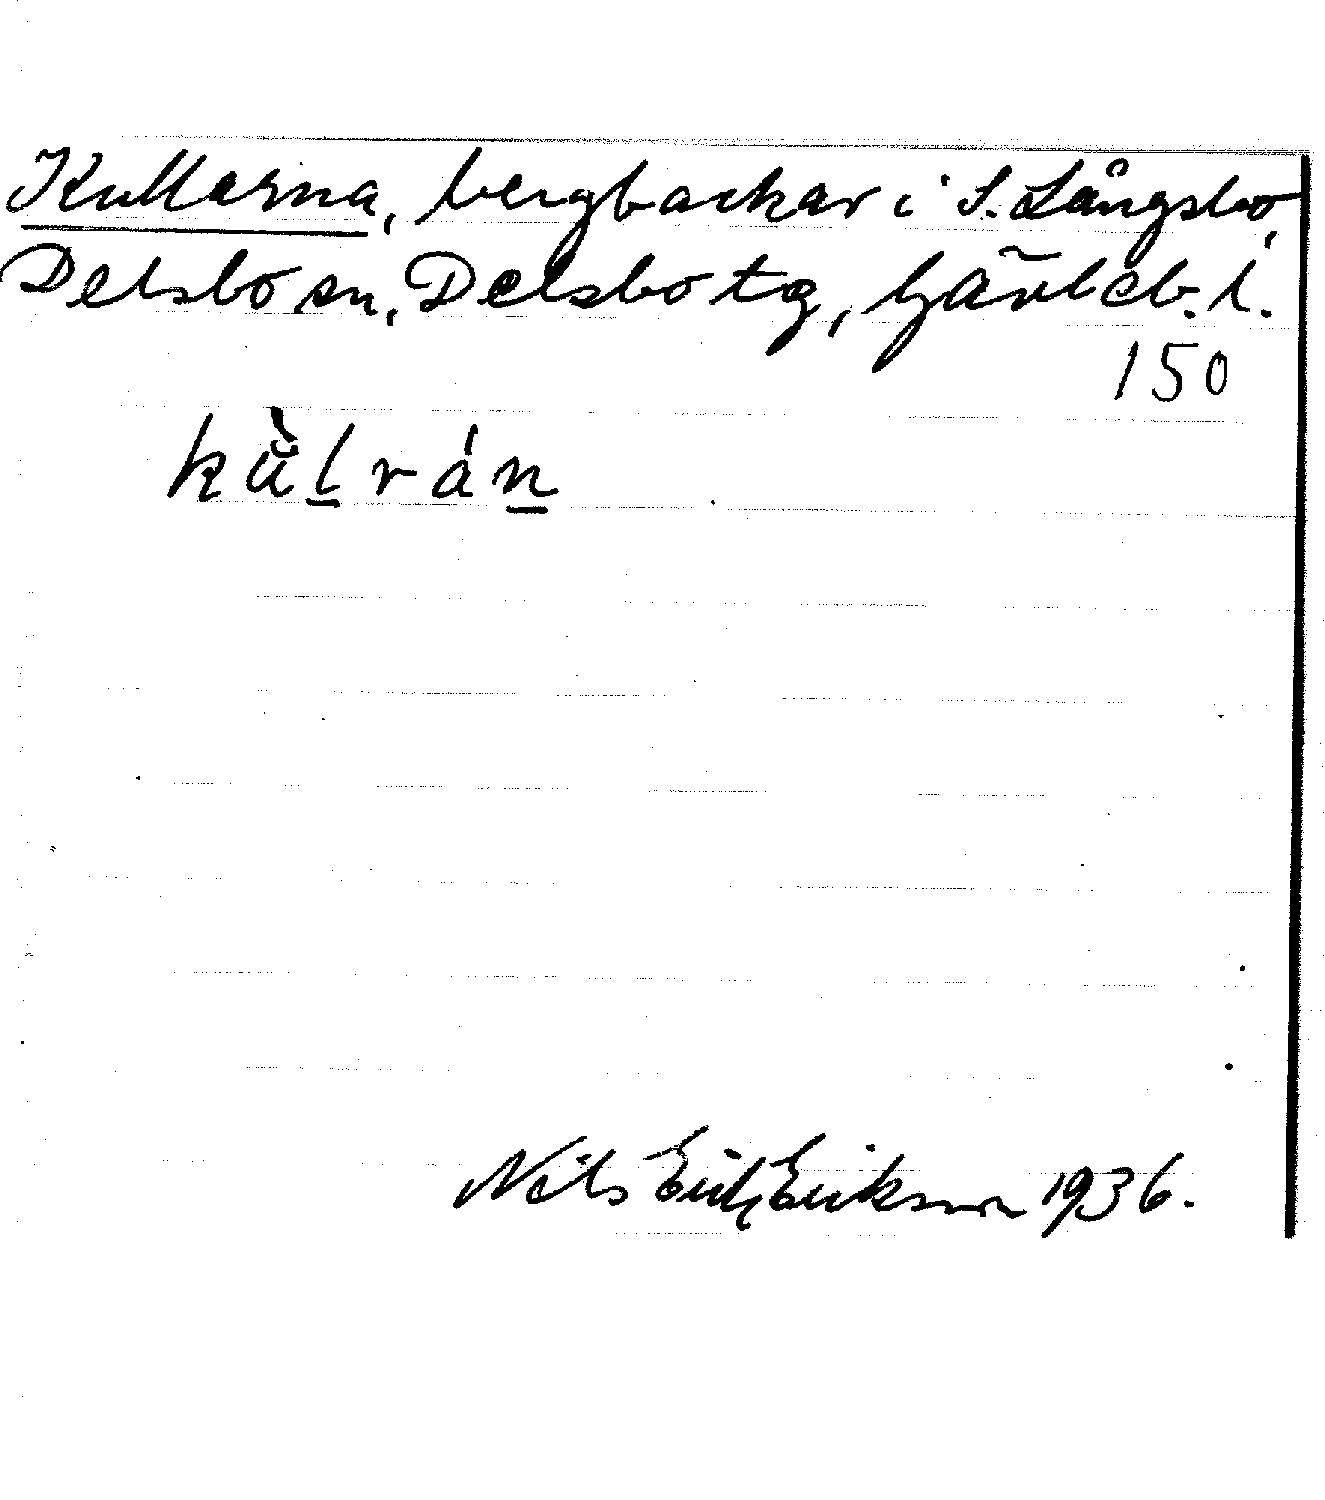 Kullarna, bergbackar i S. Långsbo,
Delsbo sn, Delsbo tg, Gävleb. l.
150
kùl̠rán̠
Nils Erik Eriksson 1936.